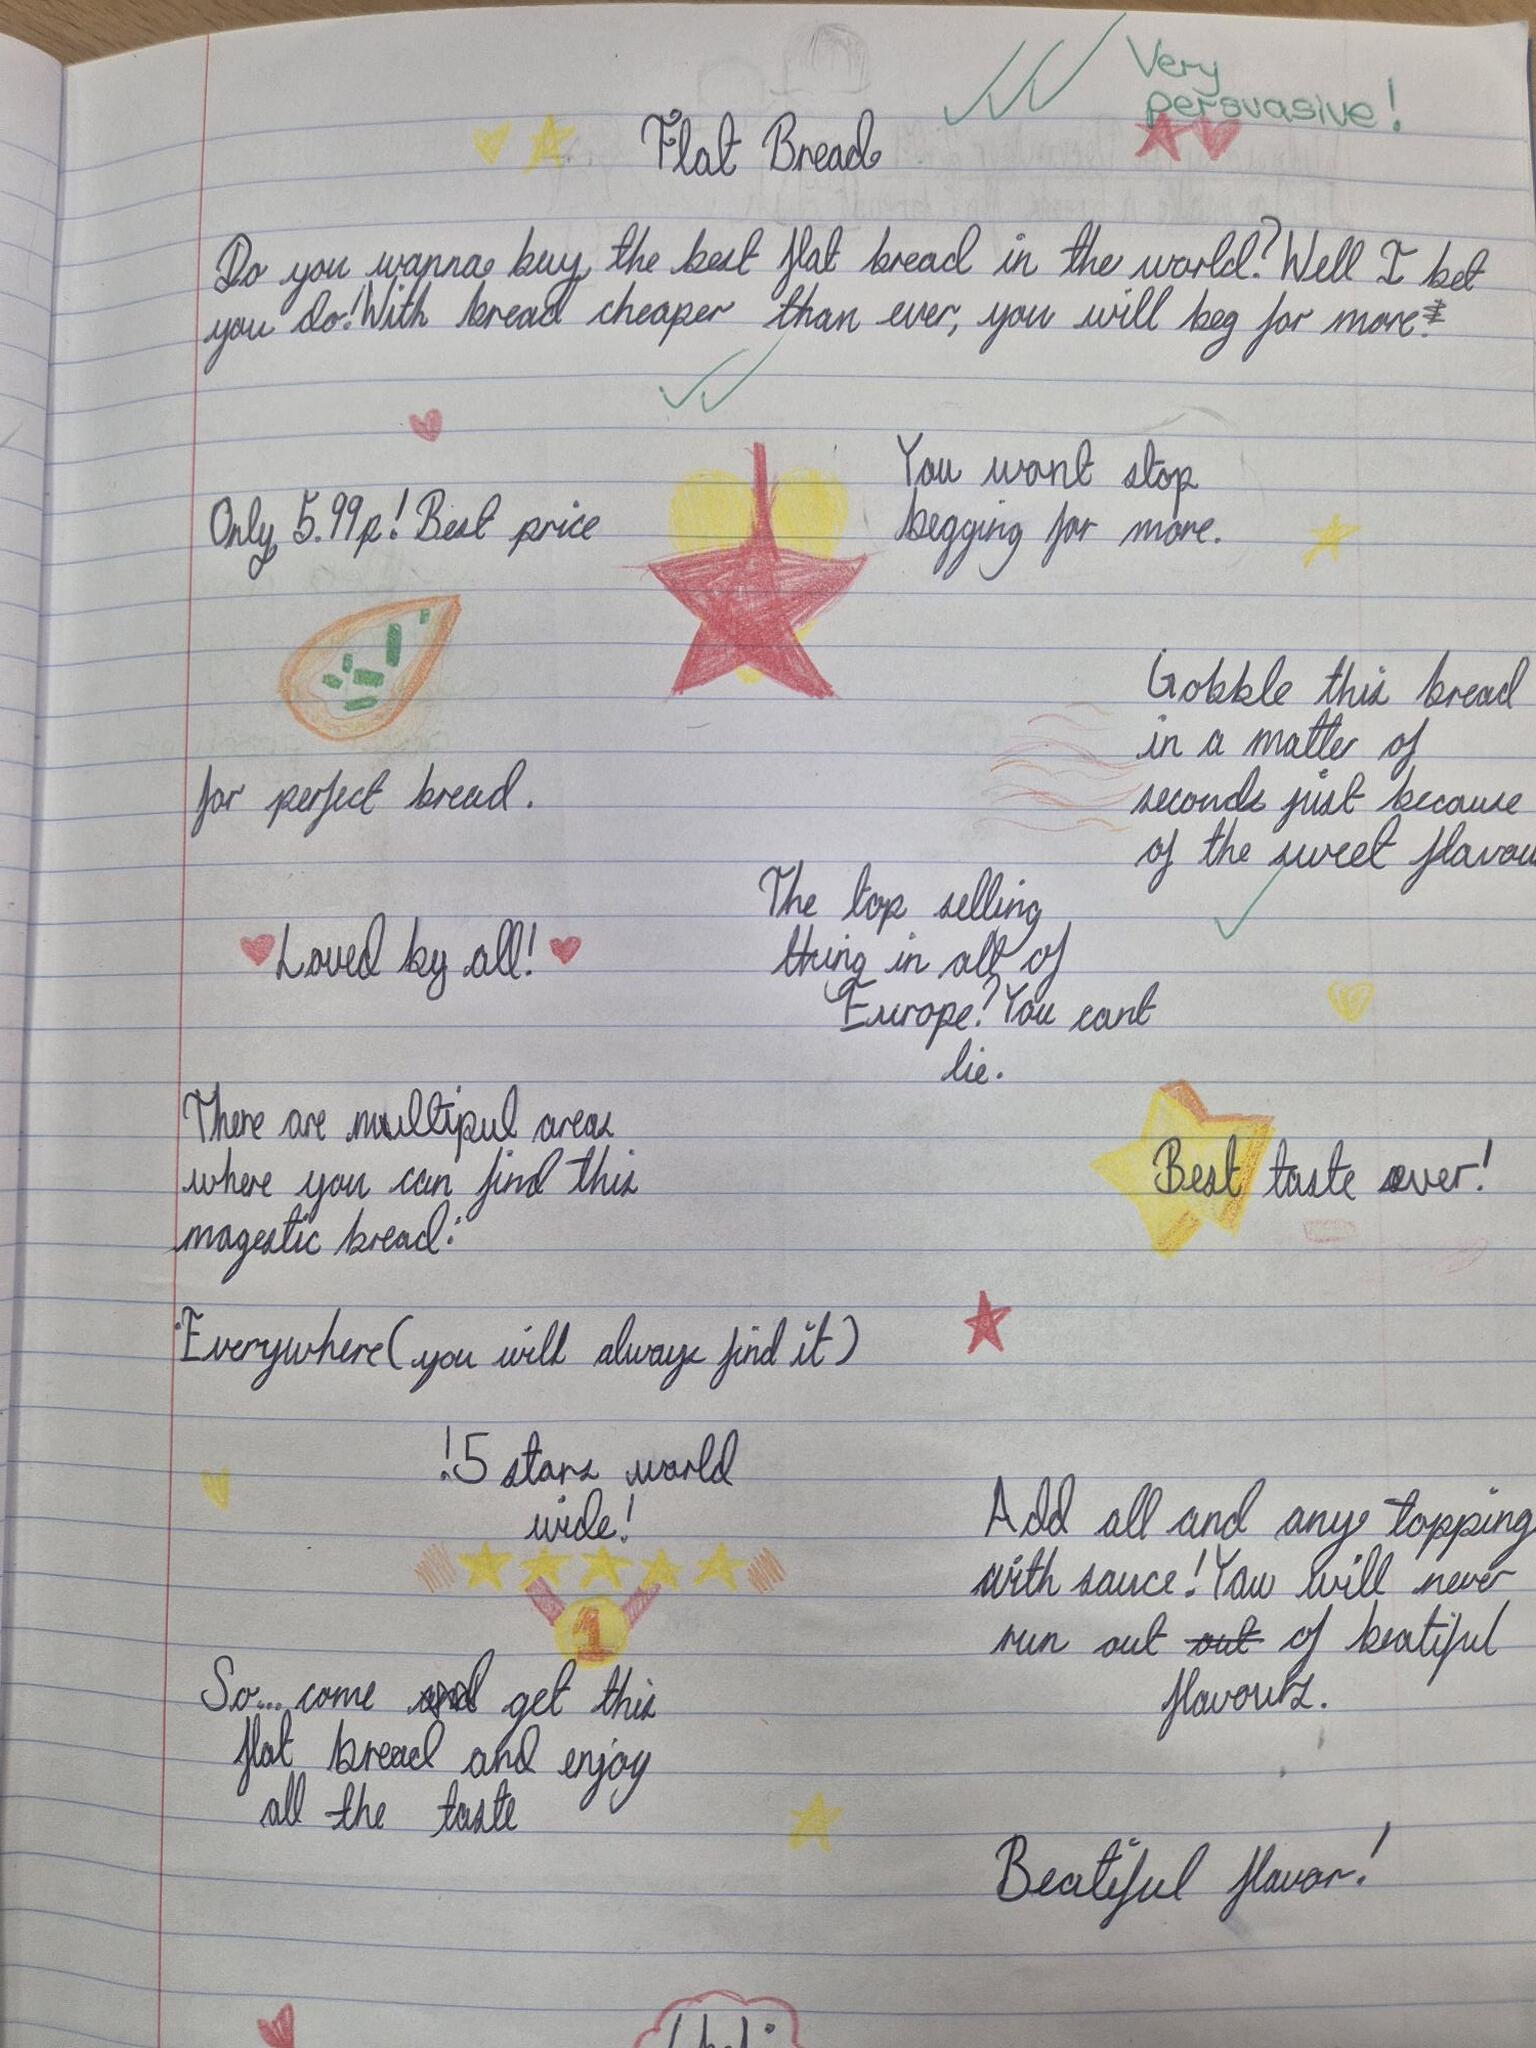 Very
persuasive!
Flat Bread
Do you wanna buy the best flat bread in the world? Well I bet
you do! With bread cheaper than ever, you will beg for more!
Only 5.99p! Best price
You wont stop
begging for more.
for perfect bread.
Gobble this bread
in a matter of
seconds just because
of the sweet flavou
Loved by all!
The top selling
thing in all of
Europe? You cant
lie.
There are multipul areas
where you can find this
magestic bread:
Best taste ever!
Everywhere (you will always find it)
!5 stars world
wide!
1
Add all and any topping
with sauce! You will never
run out out of beatiful
flavours.
So... come and get this
flat bread and enjoy
all the taste
Beatiful flavor!